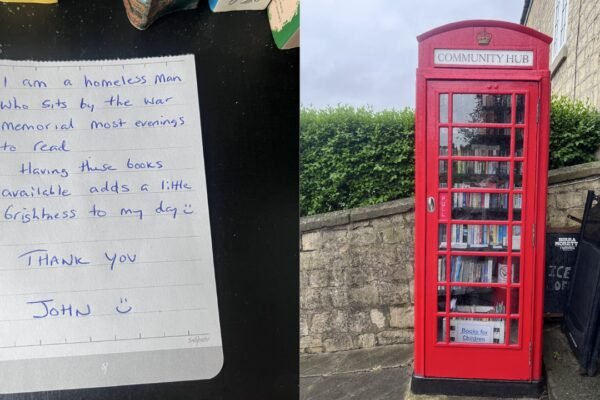 I am a homeless man
who sits by the war
memorial most evenings
to read
Having these books
available adds a little
brightness to my day
THANK YOU
JOHN
COMMUNITY HUB
PULL
Books for
Children
BIRRA
MORETTI